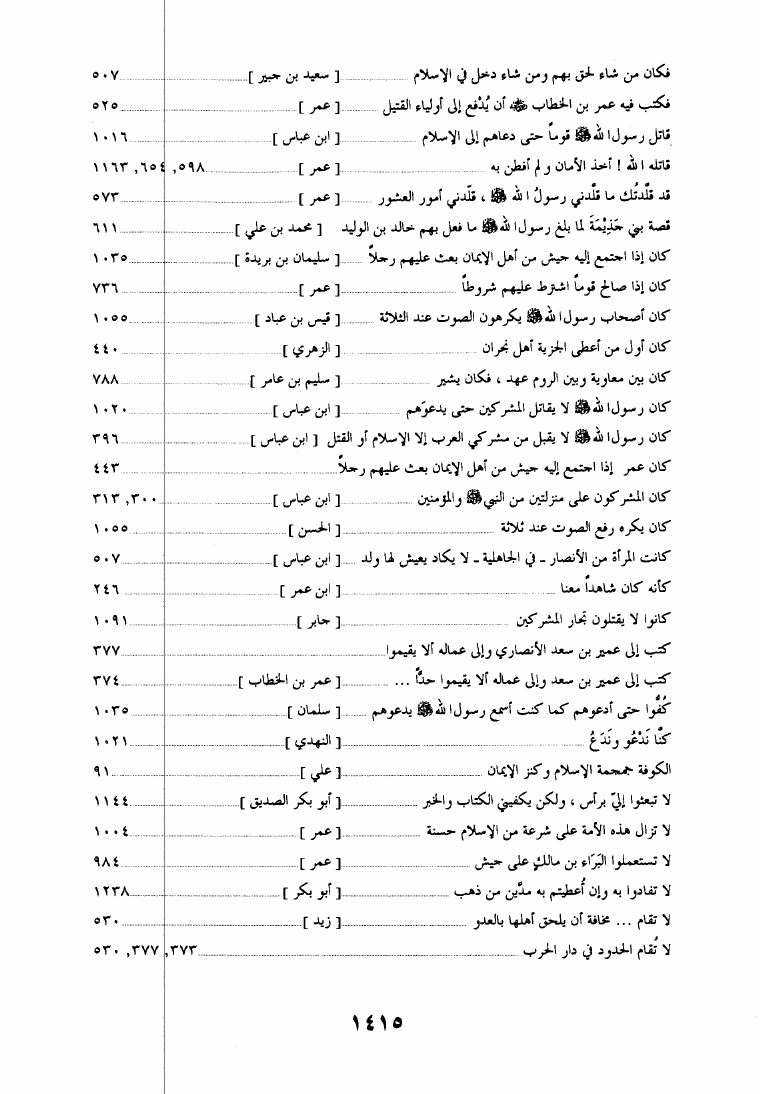 فكان من شاء لحق بهم ومن شاء دخل في الإسلام [ سعيد بن جبير ] ٥٠٧
فكتب فيه عمر بن الخطاب ﷺ أن يُدْفع إلى أولياء القتيل [ عمر ] ٥٢٥
قاتل رسول الله ﷺ قوماً حتى دعاهم إلى الإسلام [ ابن عباس ] ١٠١٦
قاتله الله ! أخذ الأمان و لم أفطن به [ عمر ] ٥٩٨, ٦٥٤, ١١٦٣
قد قلّدتُك ما قلّدني رسولُ الله ﷺ ، قلّدني أمور العشور [ عمر ] ٥٧٣
قصة بني جَذِيْمَةَ لما بلغ رسول الله ﷺ ما فعل بهم خالد بن الوليد [ محمد بن علي ] ٦١١
كان إذا اجتمع إليه جيش من أهل الإيمان بعث عليهم رجلاً [ سليمان بن بريدة ] ١٠٣٥
كان إذا صالح قوماً اشترط عليهم شروطاً [ عمر ] ٧٣٦
كان أصحاب رسول الله ﷺ يكرهون الصوت عند الثلاثة [ قيس بن عباد ] ١٠٥٥
كان أول من أعطى الجزية أهل نجران [ الزهري ] ٤٤٠
كان بين معاوية وبين الروم عهد ، فكان يشير [ سليم بن عامر ] ٧٨٨
كان رسول الله ﷺ لا يقاتل المشركين حتى يدعوَهم [ ابن عباس ] ١٠٢٠
كان رسول الله ﷺ لا يقبل من مشركي العرب إلا الإسلام أو القتل [ ابن عباس ] ٣٩٦
كان عمر إذا اجتمع إليه جيش من أهل الإيمان بعث عليهم رجلاً ٤٤٣
كان المشركون على منزلتين من النبي ﷺ والمؤمنين [ ابن عباس ] ٣٠٠, ٣١٣
كان يكره رفع الصوت عند ثلاثة [ الحسن ] ١٠٥٥
كانت المرأة من الأنصار ـ في الجاهلية ـ لا يكاد يعيش لها ولد [ ابن عباس ] ٥٠٧
كأنه كان شاهداً معنا [ ابن عمر ] ٢٤٦
كانوا لا يقتلون تجار المشركين [ جابر ] ١٠٩١
كتب إلى عمير بن سعد الأنصاري وإلى عماله ألا يقيموا ٣٧٧
كتب إلى عمير بن سعد وإلى عماله ألا يقيموا حدًّا ... [ عمر بن الخطاب ] ٣٧٤
كُفُّوا حتى أدعوهم كما كنت أسمع رسول الله ﷺ يدعوهم [ سلمان ] ١٠٣٥
كنّا نَدْعُو ونَدَعُ [ النهدي ] ١٠٢١
الكوفة جمجمة الإسلام وكنز الإيمان [ علي ] ٩١
لا تبعثوا إليّ برأس ، ولكن يكفيني الكتاب والخبر [ أبو بكر الصديق ] ١١٤٤
لا تزال هذه الأمة على شرعة من الإسلام حسنة [ عمر ] ١٠٠٤
لا تستعملوا البَرَاء بن مالكٍ على جيش [ عمر ] ٩٨٤
لا تفادوا به وإن أُعطيتم به مدَّين من ذهب [ أبو بكر ] ١٢٣٨
لا تقام ... مخافة أن يلحق أهلها بالعدو [ زيد ] ٥٣٠
لا تُقام الحدود في دار الحرب ٣٧٣, ٣٧٧, ٥٣٠
١٤١٥